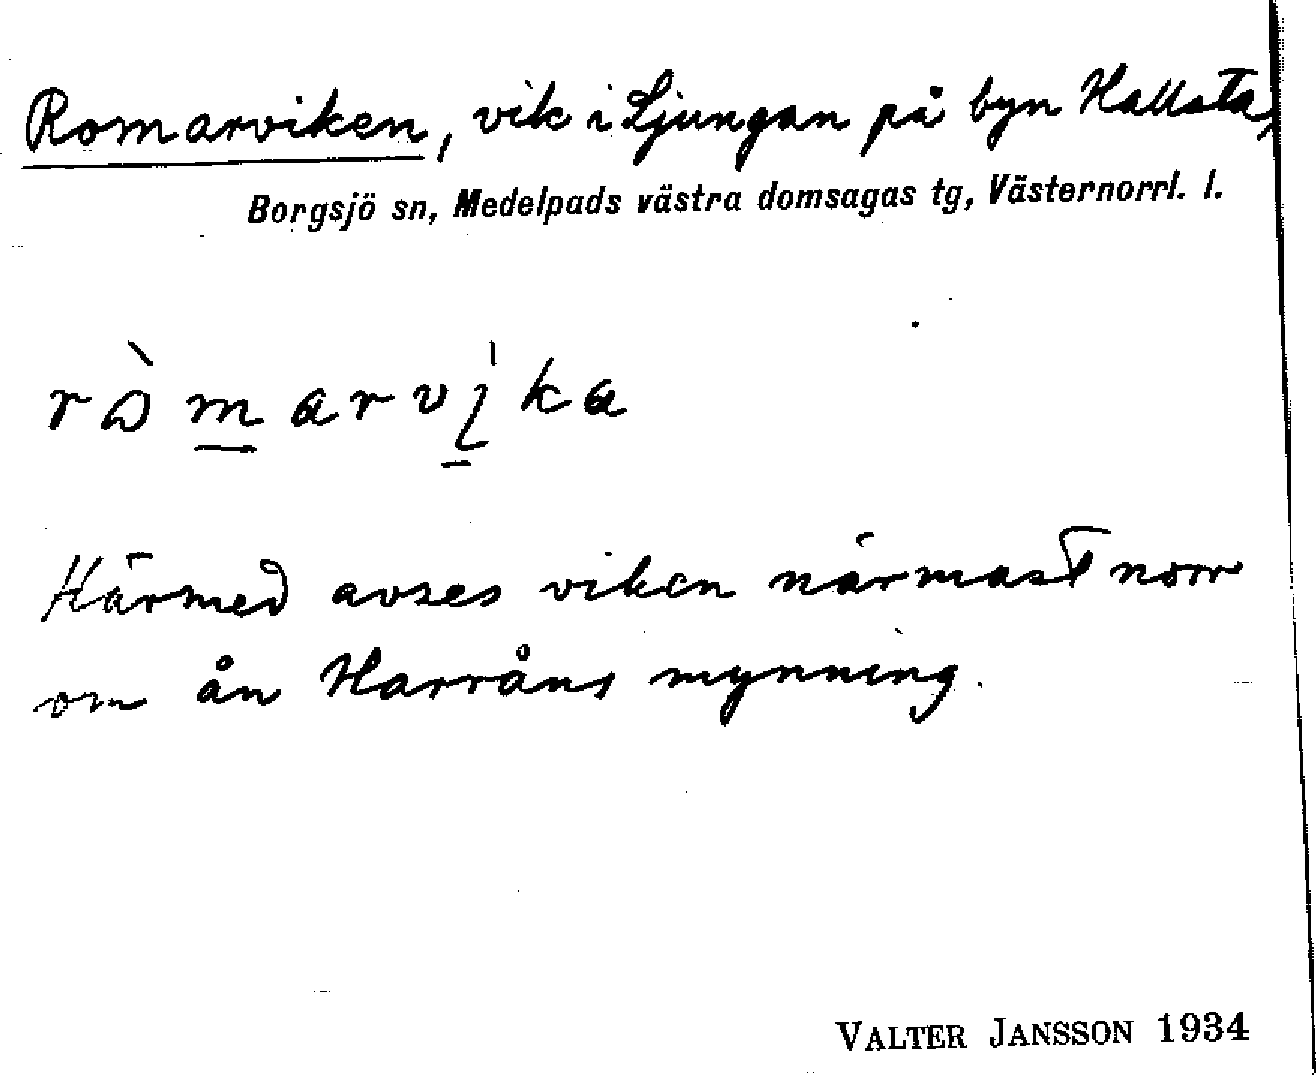 Romarviken, vik i Ljungan på byn Hallsta,
Borgsjö sn, Medelpads västra domsagas tg, Västernorrl. l.
ròmarvika
Härmed avses viken närmast norr
om ån Harråns mynning.
VALTER JANSSON 1934